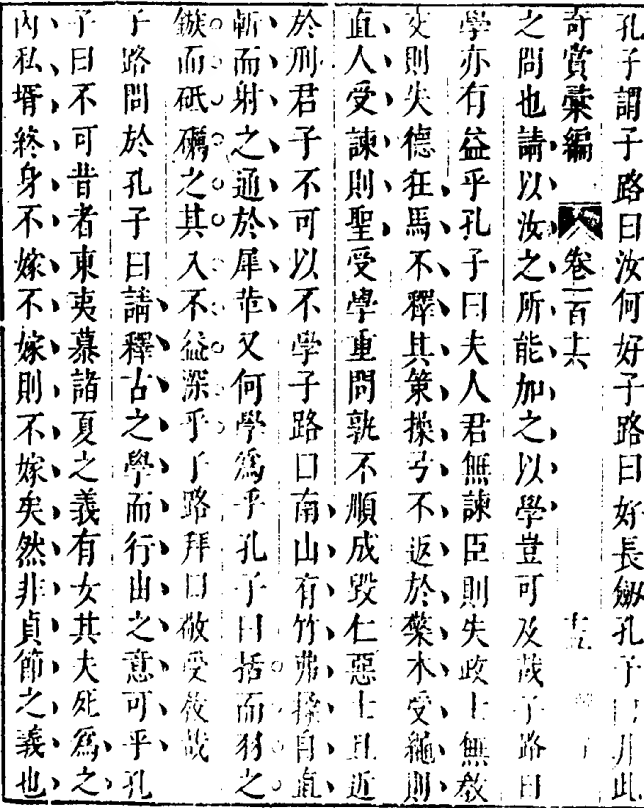 孔子謂子路曰汝何好子路曰好長劒孔子曰非此
奇賞彙編 卷一百十六 十五
之問也請以汝之所能加之以學豈可及哉子路曰
學亦有益乎孔子曰夫人君無諫臣則失政士無敎
友則失德狂馬不釋其策操弓不返於檠木受繩則
直人受諫則聖受學重問孰不順成毀仁惡士且近
於刑君子不可以不學子路曰南山有竹弗揉自直
斬而射之通於犀革又何學爲乎孔子曰括而羽之
鏃而砥礪之其入不益深乎子路拜曰敬受敎哉
子路問於孔子曰請釋古之學而行由之意可乎孔
子曰不可昔者東夷慕諸夏之義有女其夫死爲之
內私壻終身不嫁不嫁則不嫁矣然非貞節之義也